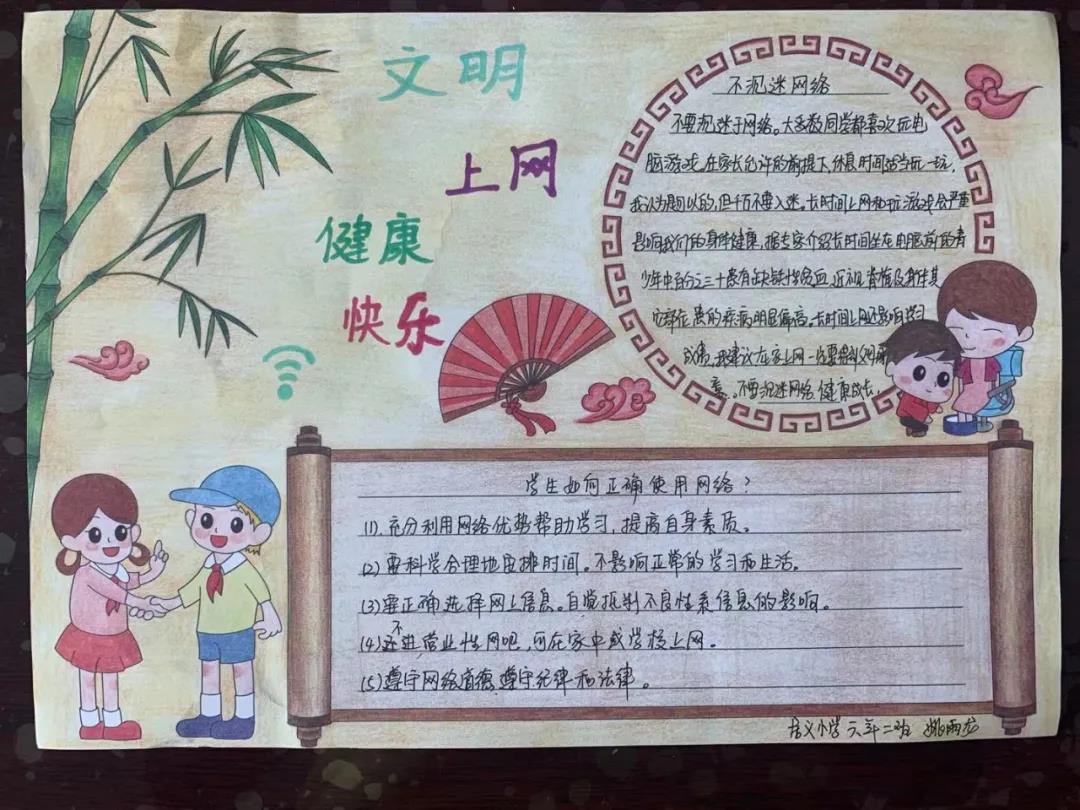 文明
上网
健康
快乐
不沉迷网络
不要沉迷于网络。大多数同学都喜欢玩电
脑游戏,在家长允许的前提下,休息时间适当玩一玩,
我认为是可以的,但千万不要入迷。长时间上网和玩游戏会严重
影响我们的身体健康,据专家介绍长时间坐在电脑前的青
少年中百分之三十患有缺铁性贫血,近视,脊椎及身体其
它部位患的疾病明显偏高。长时间上网还影响学习
成绩,我建议在家上网一定要得到
意。不要沉迷网络,健康成长,
学生如何正确使用网络?
(1).充分利用网络优势帮助学习,提高自身素质。
(2)要科学合理地安排时间。不影响正常的学习和生活。
(3)要正确选择网上信息。自觉抵制不良性系信息的影响。
(4)不进营业性网吧,可在家中或学校上网。
(5)遵守网络道德、遵守纪律和法律。
小学六年二班 姚雨龙